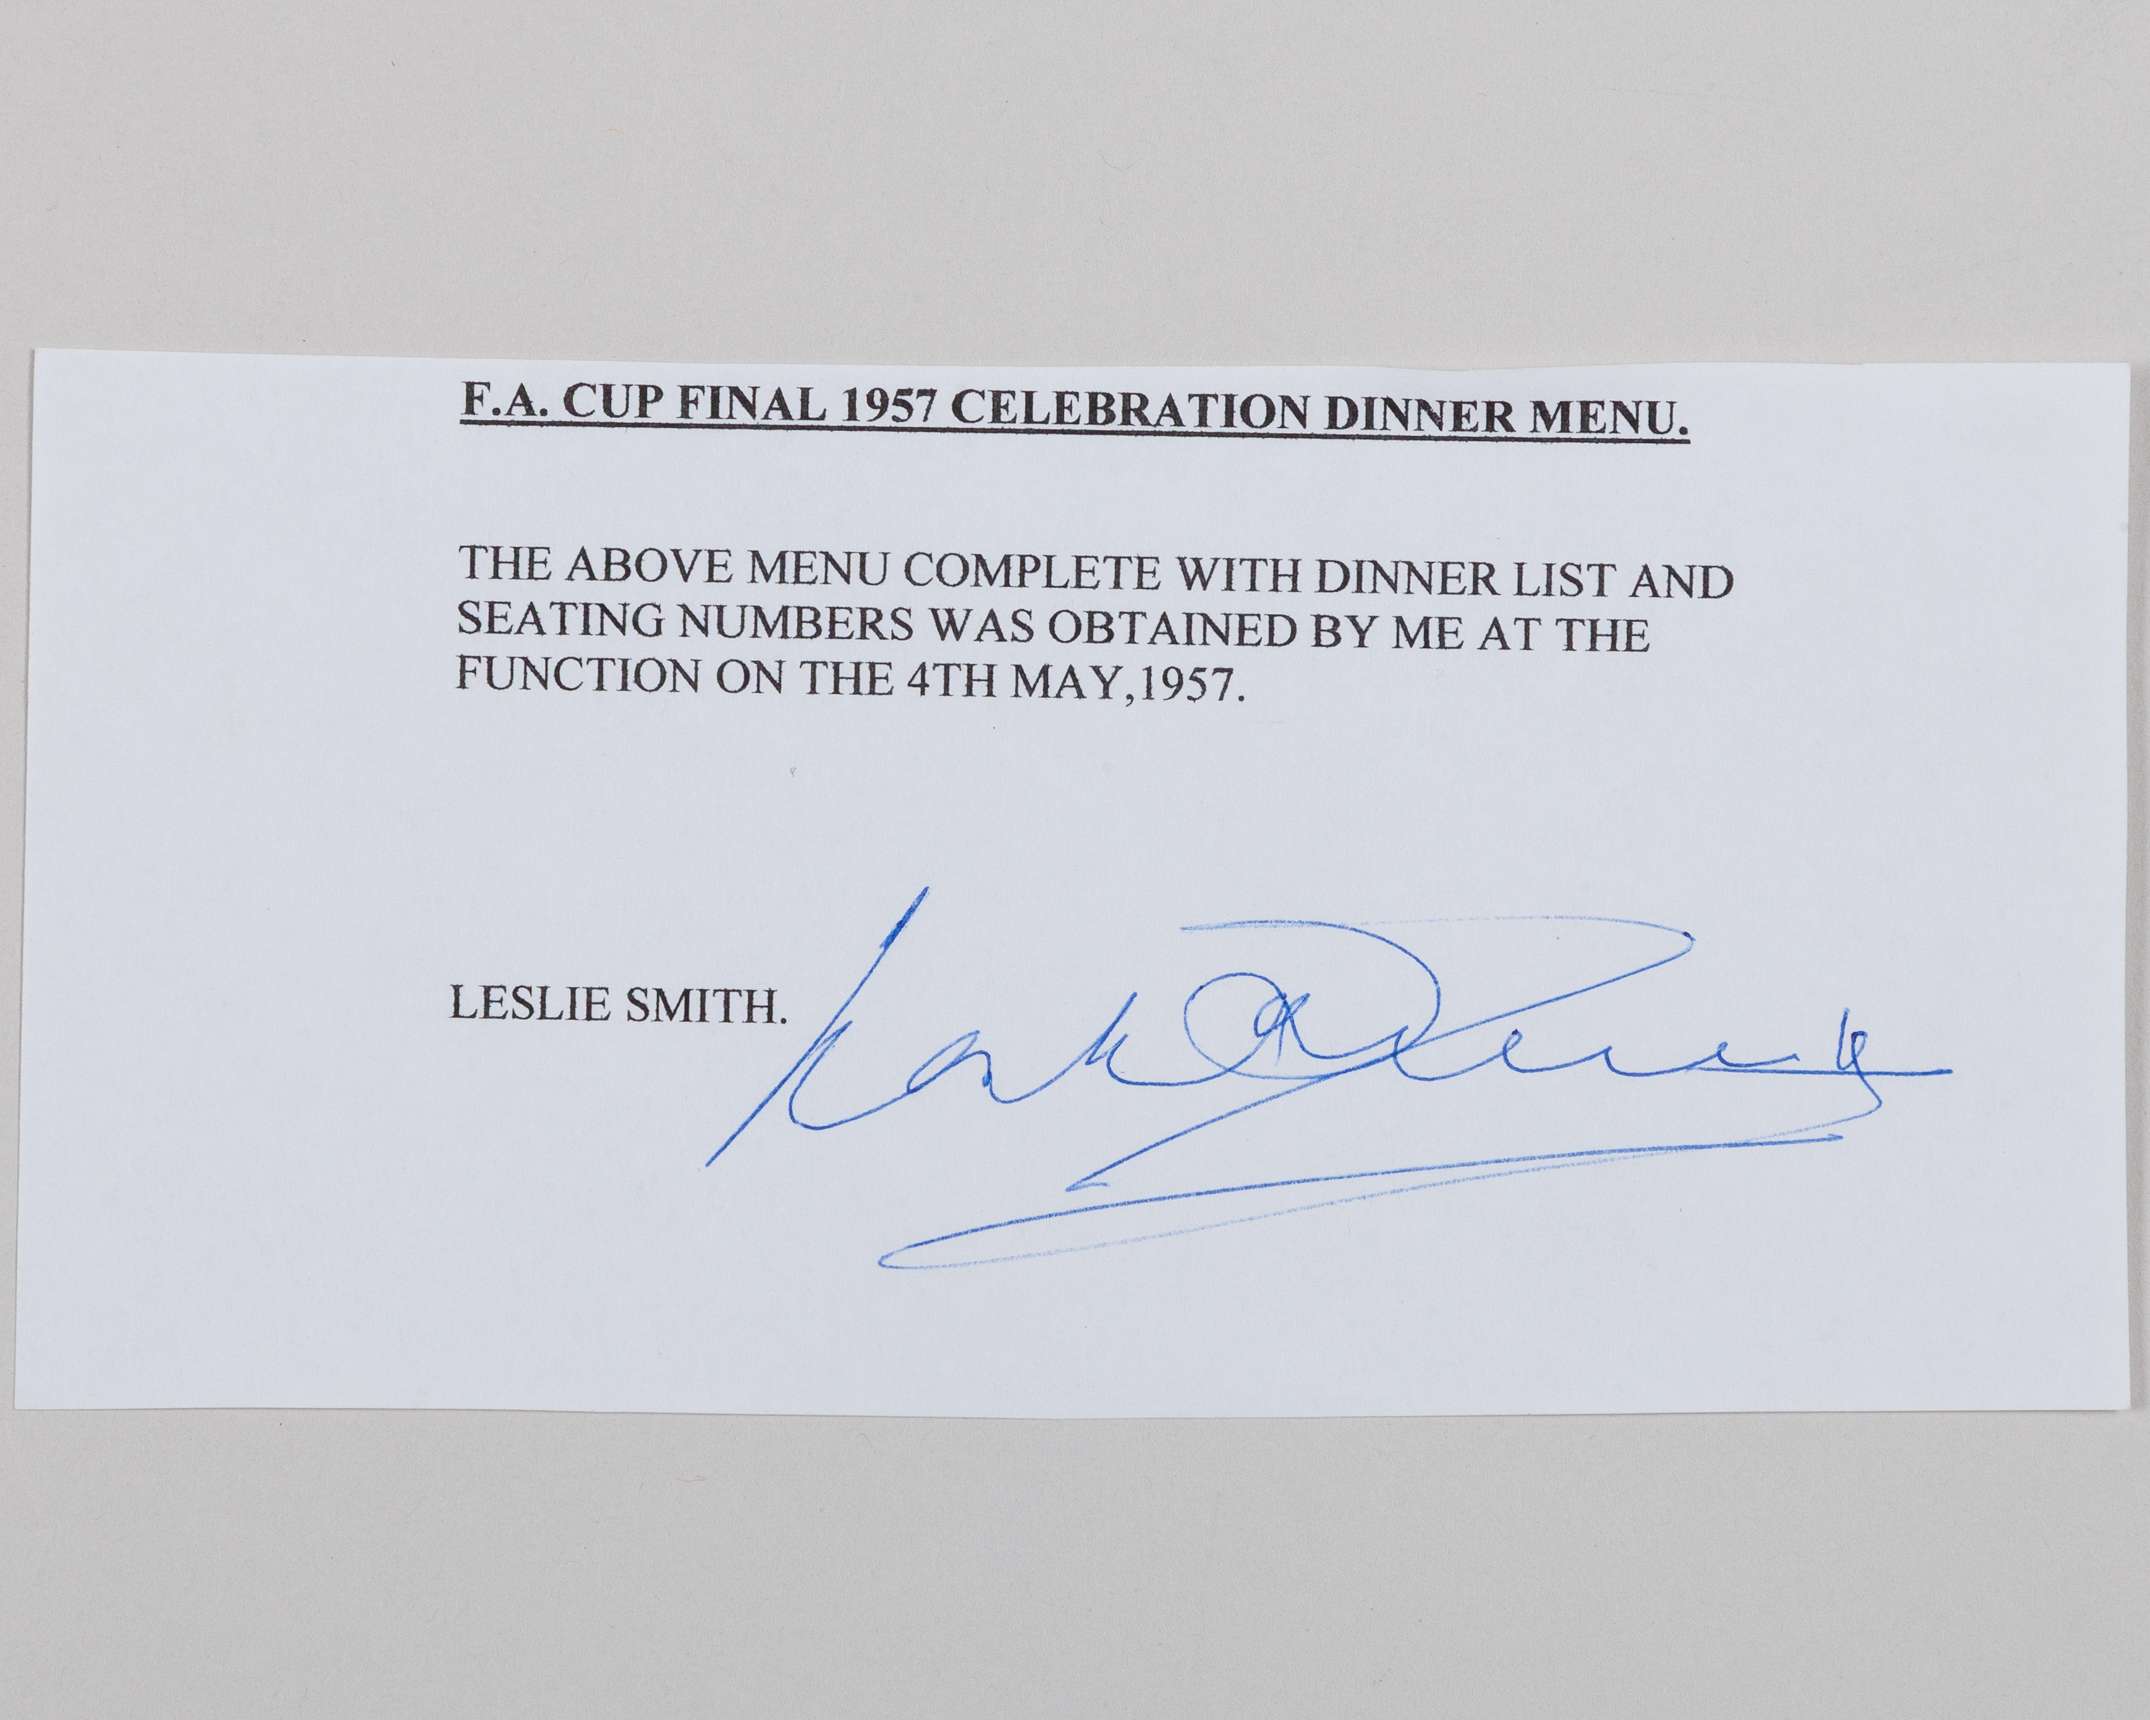 F.A. CUP FINAL 1957 CELEBRATION DINNER MENU.
THE ABOVE MENU COMPLETE WITH DINNER LIST AND
SEATING NUMBERS WAS OBTAINED BY ME AT THE
FUNCTION ON THE 4TH MAY,1957.
LESLIE SMITH.